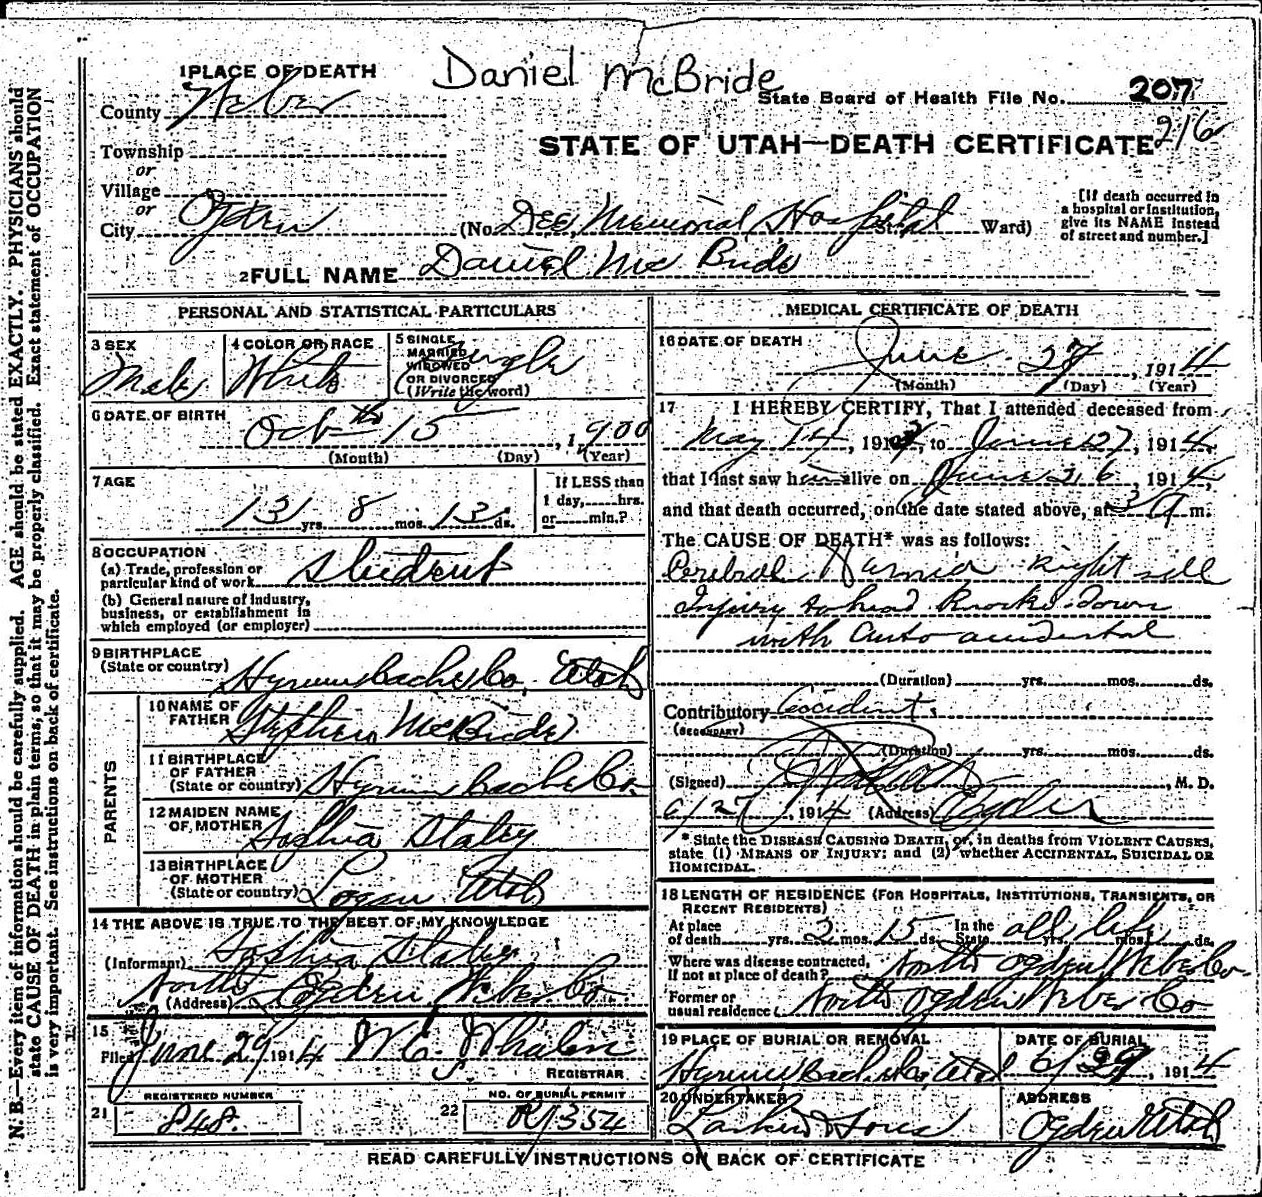 Daniel McBride
1 PLACE OF DEATH
State Board of Health File No. 207
County Weber
STATE OF UTAH—DEATH CERTIFICATE 216
Township
or
Village
or
City Ogden (No. Dee Memorial Hospital St. Ward)
[If death occurred in
a hospital or institution,
give its NAME instead
of street and number.]
2 FULL NAME Daniel McBride
PERSONAL AND STATISTICAL PARTICULARS
3 SEX
Male
4 COLOR OR RACE
White
5 SINGLE,
MARRIED
WIDOWED
OR DIVORCED
(Write the word)
Single
6 DATE OF BIRTH
Octbth 15, 1900
(Month) (Day) (Year)
7 AGE
13 yrs. 8 mos. 13 ds.
If LESS than
1 day, hrs.
or min.?
8 OCCUPATION
(a) Trade, profession or
particular kind of work Student
(b) General nature of Industry,
business, or establishment in
which employed (or employer)
9 BIRTHPLACE
(State or country) Hyrum Cache Co, Utah
PARENTS
10 NAME OF
FATHER Stephen McBride
11 BIRTHPLACE
OF FATHER
(State or country) Hyrum Cache Co.
12 MAIDEN NAME
OF MOTHER Sophia Staley
13 BIRTHPLACE
OF MOTHER
(State or country) Logan Utah
14 THE ABOVE IS TRUE TO THE BEST OF MY KNOWLEDGE
(Informant) Sophia Staley
(Address) North Ogden Weber Co.
15
Filed June 29 1914 W. E. Whalen
REGISTRAR
REGISTERED NUMBER
21 848
NO. OF BURIAL PERMIT
22 R1354
MEDICAL CERTIFICATE OF DEATH
16 DATE OF DEATH
June 27, 1914
(Month) (Day) (Year)
17 I HEREBY CERTIFY, That I attended deceased from
May 14, 1914, to June 27, 1914,
that I last saw him alive on June 26, 1914,
and that death occurred, on the date stated above, at 3 A m.
The CAUSE OF DEATH* was as follows:
Cerebral Hernia Right side
Injury to head Knocked down
with Auto accidental
(Duration) yrs. mos. ds.
Contributory Accident
(SECONDARY)
(Duration) yrs. mos. ds.
(Signed) , M. D.
6/27, 1914 (Address) Ogden
* State the DISEASE CAUSING DEATH, or, in deaths from VIOLENT CAUSES,
state (1) MEANS OF INJURY; and (2) whether ACCIDENTAL, SUICIDAL OR
HOMICIDAL.
18 LENGTH OF RESIDENCE (FOR HOSPITALS, INSTITUTIONS, TRANSIENTS, OR
RECENT RESIDENTS)
At place
of death yrs. 2 mos. 15 ds. In the State all life yrs. mos. ds.
Where was disease contracted,
if not at place of death? North Ogden Weber Co.
Former or
usual residence North Ogden Weber Co
19 PLACE OF BURIAL OR REMOVAL
Hyrum, Cache Co, Utah
DATE OF BURIAL
6/29, 1914
20 UNDERTAKER
Larkin & Sons
ADDRESS
Ogden Utah
READ CAREFULLY INSTRUCTIONS ON BACK OF CERTIFICATE
N. B.—Every item of information should be carefully supplied. AGE should be stated EXACTLY. PHYSICIANS should
state CAUSE OF DEATH in plain terms, so that it may be properly classified. Exact statement of OCCUPATION
is very important. See instructions on back of certificate.